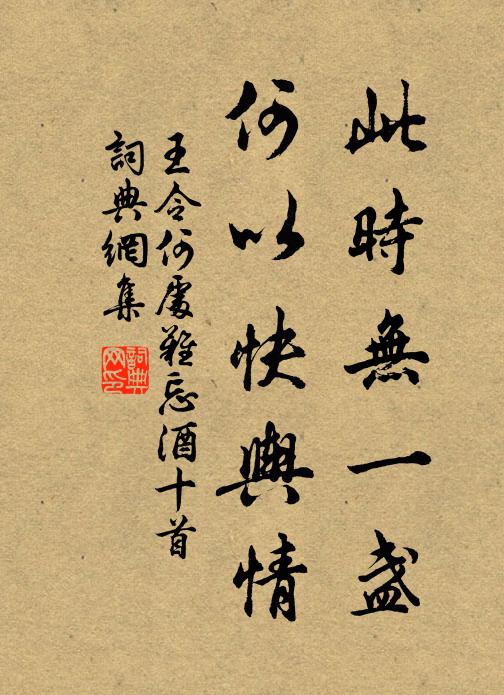 此時無一盞
何以快輿情
王令何處難忘酒十首
詞典網集
詞典網印